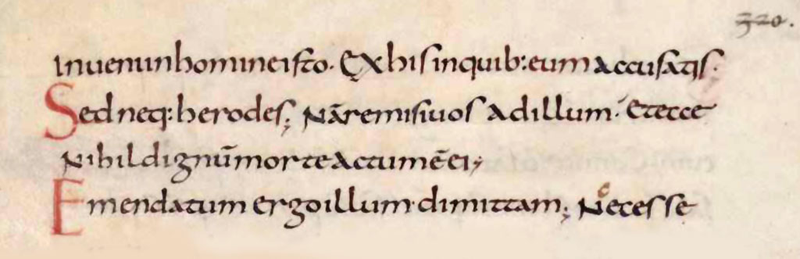 320.
invenio in homine isto. Ex his in quib: eum accusatis.
Sed neq: herodes; Nā remisi vos ad illum. Et ecce
Nihil dignū morte actum ē ei;
Emendatum ergo illum dimittam; Necesse